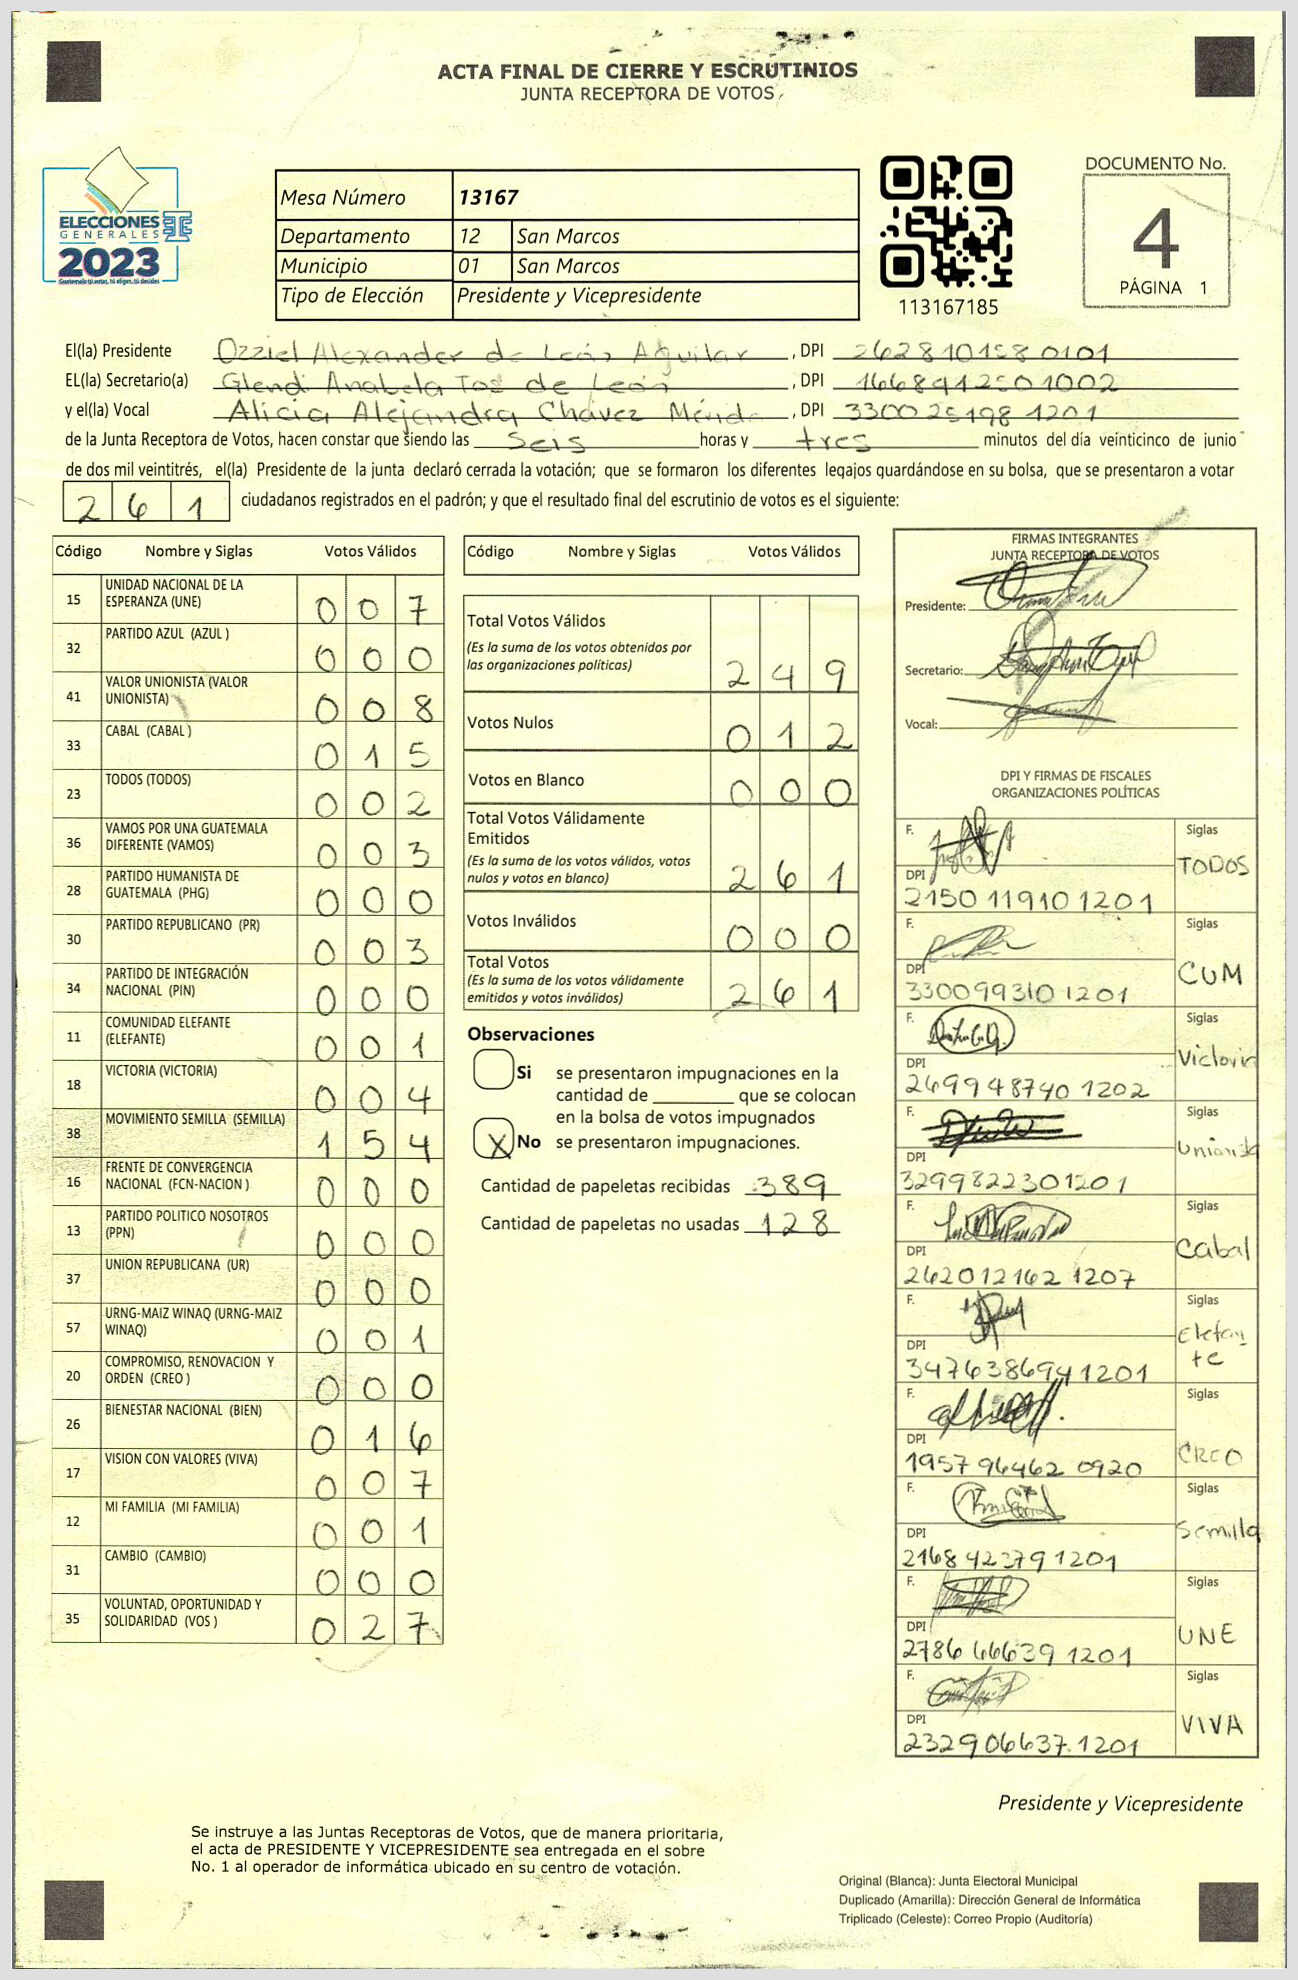 ACTA FINAL DE CIERRE Y ESCRUTINIOS
JUNTA RECEPTORA DE VOTOS
ELECCIONES
GENERALES
2023
TSE
Mesa Número 13167
Departamento 12 San Marcos
Municipio 01 San Marcos
Tipo de Elección Presidente y Vicepresidente
113167185
DOCUMENTO No.
4
PÁGINA 1
El(la) Presidente Ozziel Alexander de León Aguilar, DPI 2628101580101
EL(la) Secretario(a) Glendi Anabela Toc de León, DPI 1668412501002
y el(la) Vocal Alicia Alejandra Chávez, DPI 3300251981201
de la Junta Receptora de Votos, hacen constar que siendo las seis horas y tres minutos del día veinticinco de junio
de dos mil veintitrés, el(la) Presidente de la junta declaró cerrada la votación; que se formaron los diferentes legajos guardándose en su bolsa, que se presentaron a votar
261 ciudadanos registrados en el padrón; y que el resultado final del escrutinio de votos es el siguiente:
Código Nombre y Siglas Votos Válidos
15 UNIDAD NACIONAL DE LA ESPERANZA (UNE) 007
32 PARTIDO AZUL (AZUL ) 000
41 VALOR UNIONISTA (VALOR UNIONISTA) 008
33 CABAL (CABAL ) 015
23 TODOS (TODOS) 002
36 VAMOS POR UNA GUATEMALA DIFERENTE (VAMOS) 003
28 PARTIDO HUMANISTA DE GUATEMALA (PHG) 000
30 PARTIDO REPUBLICANO (PR) 003
34 PARTIDO DE INTEGRACIÓN NACIONAL (PIN) 000
11 COMUNIDAD ELEFANTE (ELEFANTE) 001
18 VICTORIA (VICTORIA) 004
38 MOVIMIENTO SEMILLA (SEMILLA) 154
16 FRENTE DE CONVERGENCIA NACIONAL (FCN-NACION ) 000
13 PARTIDO POLITICO NOSOTROS (PPN) 000
37 UNION REPUBLICANA (UR) 000
57 URNG-MAIZ WINAQ (URNG-MAIZ WINAQ) 001
20 COMPROMISO, RENOVACION Y ORDEN (CREO ) 000
26 BIENESTAR NACIONAL (BIEN) 016
17 VISION CON VALORES (VIVA) 007
12 MI FAMILIA (MI FAMILIA) 001
31 CAMBIO (CAMBIO) 000
35 VOLUNTAD, OPORTUNIDAD Y SOLIDARIDAD (VOS ) 027
Código Nombre y Siglas Votos Válidos
Total Votos Válidos 249
(Es la suma de los votos obtenidos por
las organizaciones políticas)
Votos Nulos 012
Votos en Blanco 000
Total Votos Válidamente
Emitidos 261
(Es la suma de los votos válidos, votos
nulos y votos en blanco)
Votos Inválidos 000
Total Votos 261
(Es la suma de los votos válidamente
emitidos y votos inválidos)
Observaciones
Si se presentaron impugnaciones en la
cantidad de ________ que se colocan
en la bolsa de votos impugnados
X No se presentaron impugnaciones.
Cantidad de papeletas recibidas 389
Cantidad de papeletas no usadas 128
FIRMAS INTEGRANTES
JUNTA RECEPTORA DE VOTOS
Presidente:
Secretario:
Vocal:
DPI Y FIRMAS DE FISCALES
ORGANIZACIONES POLÍTICAS
F. Siglas TODOS
DPI 2150 11910 1201
F. Siglas CUM
DPI 3300993101201
F. Siglas Victoria
DPI 2699487401202
F. Siglas Unionista
DPI 3299822301201
F. Siglas Cabal
DPI 262012162 1207
F. Siglas Elefante
DPI 3476386941201
F. Siglas CREO
DPI 1957 96462 0920
F. Siglas Semilla
DPI 2168423791201
F. Siglas UNE
DPI 2786 66639 1201
F. Siglas VIVA
DPI 232906637 1201
Presidente y Vicepresidente
Se instruye a las Juntas Receptoras de Votos, que de manera prioritaria,
el acta de PRESIDENTE Y VICEPRESIDENTE sea entregada en el sobre
No. 1 al operador de informática ubicado en su centro de votación.
Original (Blanca): Junta Electoral Municipal
Duplicado (Amarilla): Dirección General de Informática
Triplicado (Celeste): Correo Propio (Auditoría)